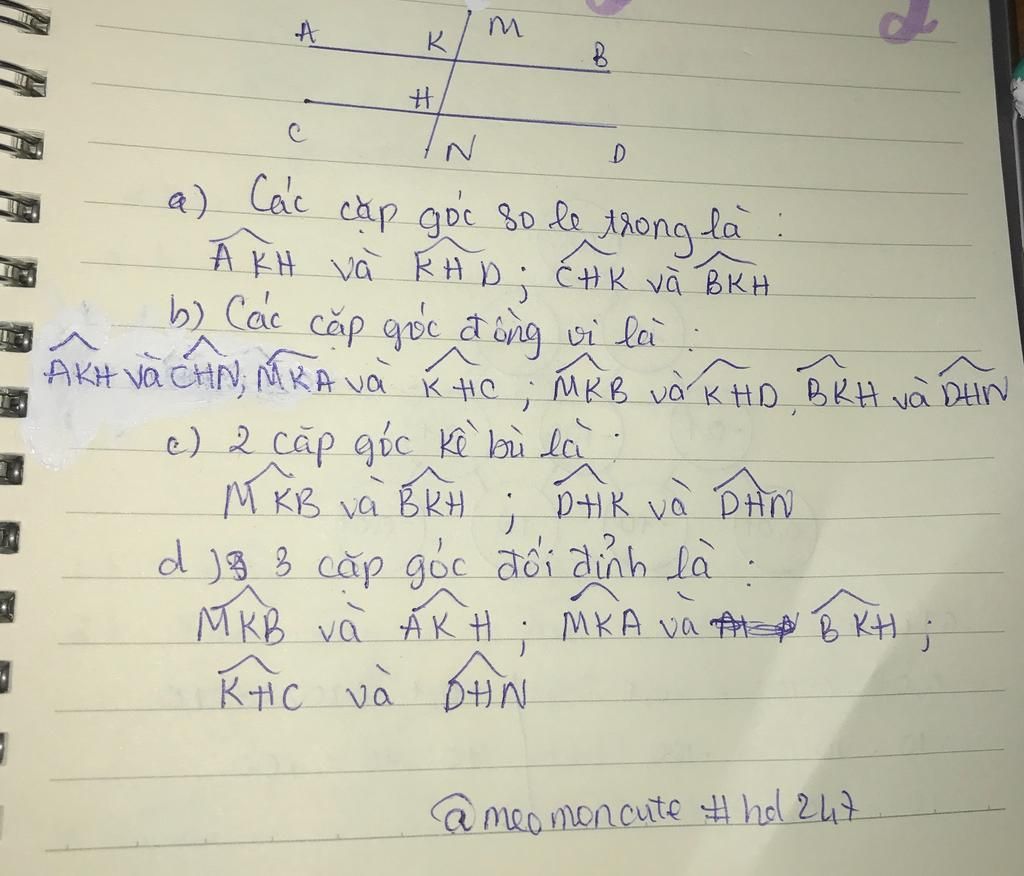 A K M B
C H N D
a) Các cặp góc so le trong là :
AKH và KHD ; CHK và BKH
b) Các cặp góc đồng vị là :
AKH và CHN; MKA và KHC ; MKB và KHD, BKH và DHN
c) 2 cặp góc kề bù là :
MKB và BKH ; DHK và DHN
d) 3 cặp góc đối đỉnh là :
MKB và AKH ; MKA và BKH ;
KHC và DHN
@meomoncute #hd247